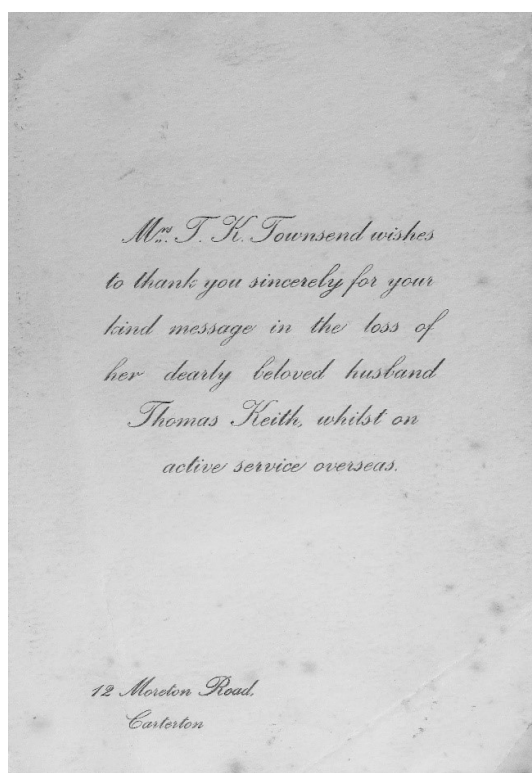 Mrs. T. K. Townsend wishes
to thank you sincerely for your
kind message in the loss of
her dearly beloved husband
Thomas Keith, whilst on
active service overseas.
12 Moreton Road,
Carterton